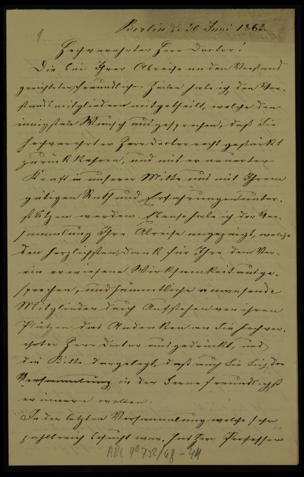 Berlin d. 20 Juni 1862
Hochverehrter Herr Doctor!
Die bei Ihrer Abreise an den Vorstand
gerichteten freundlichen Zeilen habe ich den Vor-
standsmitgliedern mitgetheilt, welche den
innigsten Wunsch ausgesprochen, daß Sie
hochverehrter Herr Doctor recht gestärkt
zurück kehren, und mit erneuerter
Kraft in unserer Mitte uns mit Ihrem
gütigen Rath und Erfahrungen unter-
stützen werden. Ebenso habe ich der Ver-
sammlung Ihre Abreise angezeigt, welche
den herzlichsten Dank für Ihre dem Ver-
ein erwiesene Wirksamkeit ausge-
sprochen, und sämmtliche anwesende
Mitglieder durch Aufstehen von ihren
Plätzen das Andenken an Sie hochver-
ehrter Herr Doctor ausgedrückt, und
die Bitte dargelegt, daß auch Sie sich der
Versammlung in der Ferne freundlichst
erinnern wollen.
In der letzten Versammlung welche sehr
zahlreich besucht war, hat Herr Professor